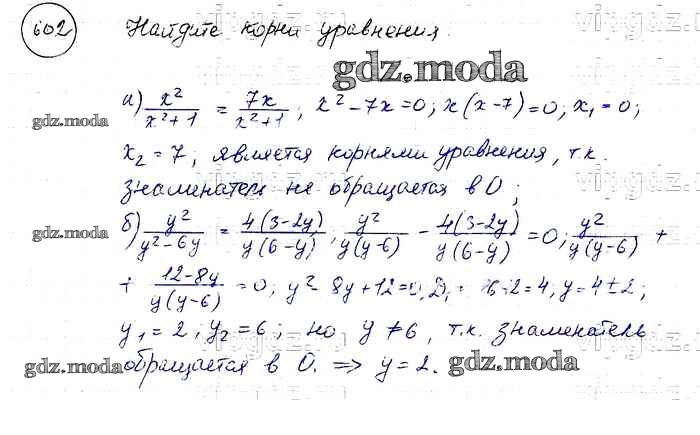 602 Найдите корни уравнения.
vipgdz.ru
gdz.moda
а) x²/(x²+1) = 7x/(x²+1); x²-7x=0; x(x-7)=0; x₁=0;
gdz.moda
x₂=7; является корнями уравнения, т.к.
знаменатель не обращается в 0;
б) y²/(y²-6y) = 4(3-2y)/(y(6-y)); y²/(y(y-6)) - 4(3-2y)/(y(6-y)) = 0; y²/(y(y-6)) +
gdz.moda
+ (12-8y)/(y(y-6)) = 0; y²-8y+12=0; D₁=16-12=4, y=4±2;
y₁=2, y₂=6; но y≠6, т.к. знаменатель
обращается в 0. ⇒ y=2.
gdz.moda
gdz.moda